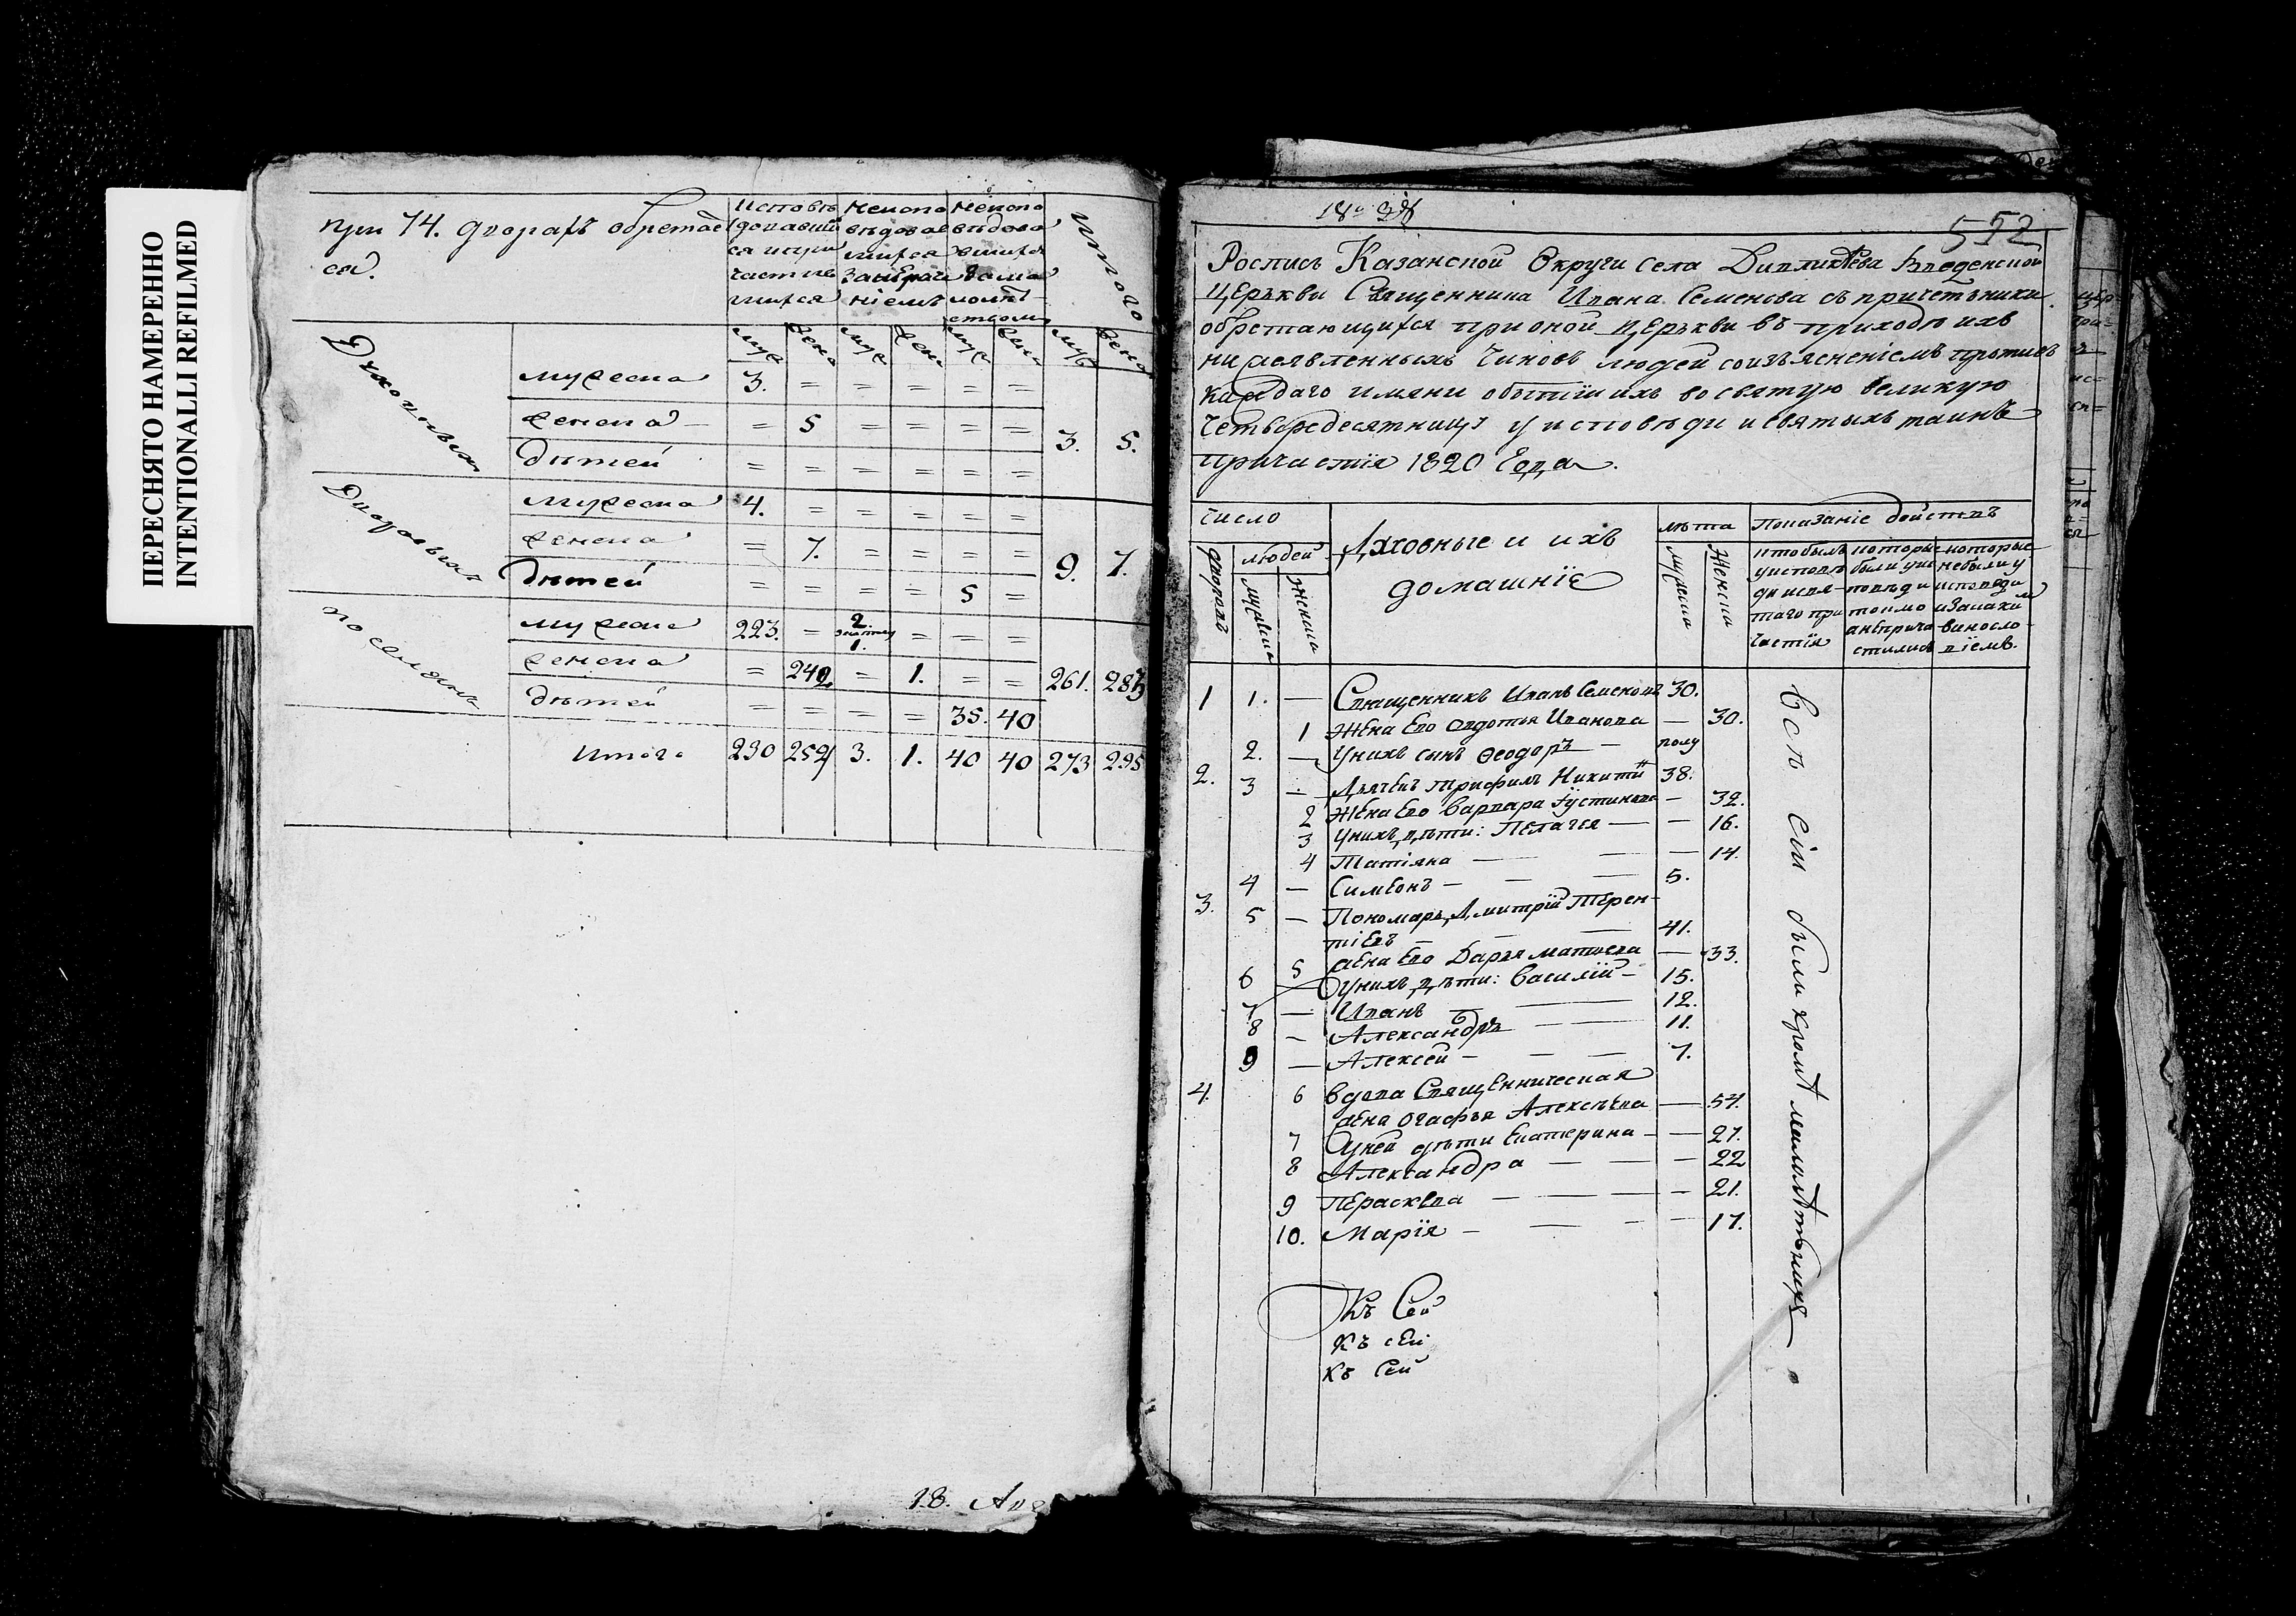 ПЕРЕСНЯТО НАМЕРЕННО
INTENTIONALLI REFILMED
при 74. дворахъ обретае
ся.
Исповѣ
довавши
ся и при
частив
шихся
Неиспо
вѣдовав
шихся
Неиспо
вѣдова
вшихся
Итого
муж жена муж жен муж жена муж жена
Духовныхъ
мужеска 3. = = = = =
женска = 5 = = = = 3. 5.
дѣтей = = = = = =
Дворовыхъ
мужеска 4. = = = = =
женска = 7. = = = = 9. 7.
дѣтей = = = = 5 =
поселянъ
мужска 223. = 2. 1. = = =
женска = 240 = 1. = = 261. 283
дѣтей = = = = 35. 40
Итого 230 252 3. 1. 40 40 273 295
18.
552
Роспись Казанской Округи села Введенской
церькви Священника Ивана Семенова съ причетьники
обретающихся при оной церькви въ приходѣ ихъ
нижеявленныхъ чиновъ людей соизъясненіемъ противъ
каждаго имяни о бытіи ихъ во святую великую
четыредесятницу у исповѣди и святыхъ таинъ
причастія 1820 Года.
число
дворовъ
людей
мужеска
женска
Духовные и ихъ
домашніе
лѣта
мужеска
женска
Показаніе действъ
кто былъ
у исповѣ
ди и свя-
таго при
частія
которые
были у ис
поведи
токмо
не прича
стились
которые
не были у
исповѣди
и за каким
винословіемъ.
1 1. — Священникъ Иванъ Семеновъ 30.
1 Жена Его Авдотья Иванова — 30.
2. — У нихъ сынъ Ѳеодоръ — полу
2. 3 — Дьячекъ Трифилъ Никити 38.
2 Жена Его Варвара Густинова — 32.
3 У нихъ дѣти: Пелагея — — 16.
4 Татіяна — — — 14.
4 — Симеонъ — — — 5.
3. 5 — Пономарь Дмитрій Терен-
тіевъ — — — 41.
5 Жена Его Дарья Матвеева — 33.
6 — У нихъ дѣти: Василій — 15.
7 — Иванъ — — 12.
8 — Александръ — — 11.
9 — Алексей — — — 7.
4. 6 Вдова Священническая
жена Огафья Алексѣева — 54.
7 У ней дѣти Екатерина — — 27.
8 Александра — — — 22
9 Перасковья — — — 21.
10. Марія — — — 17.
Всѣ сіи были кромѣ малолѣтныхъ
Къ Сей
Къ сей
Къ Сей